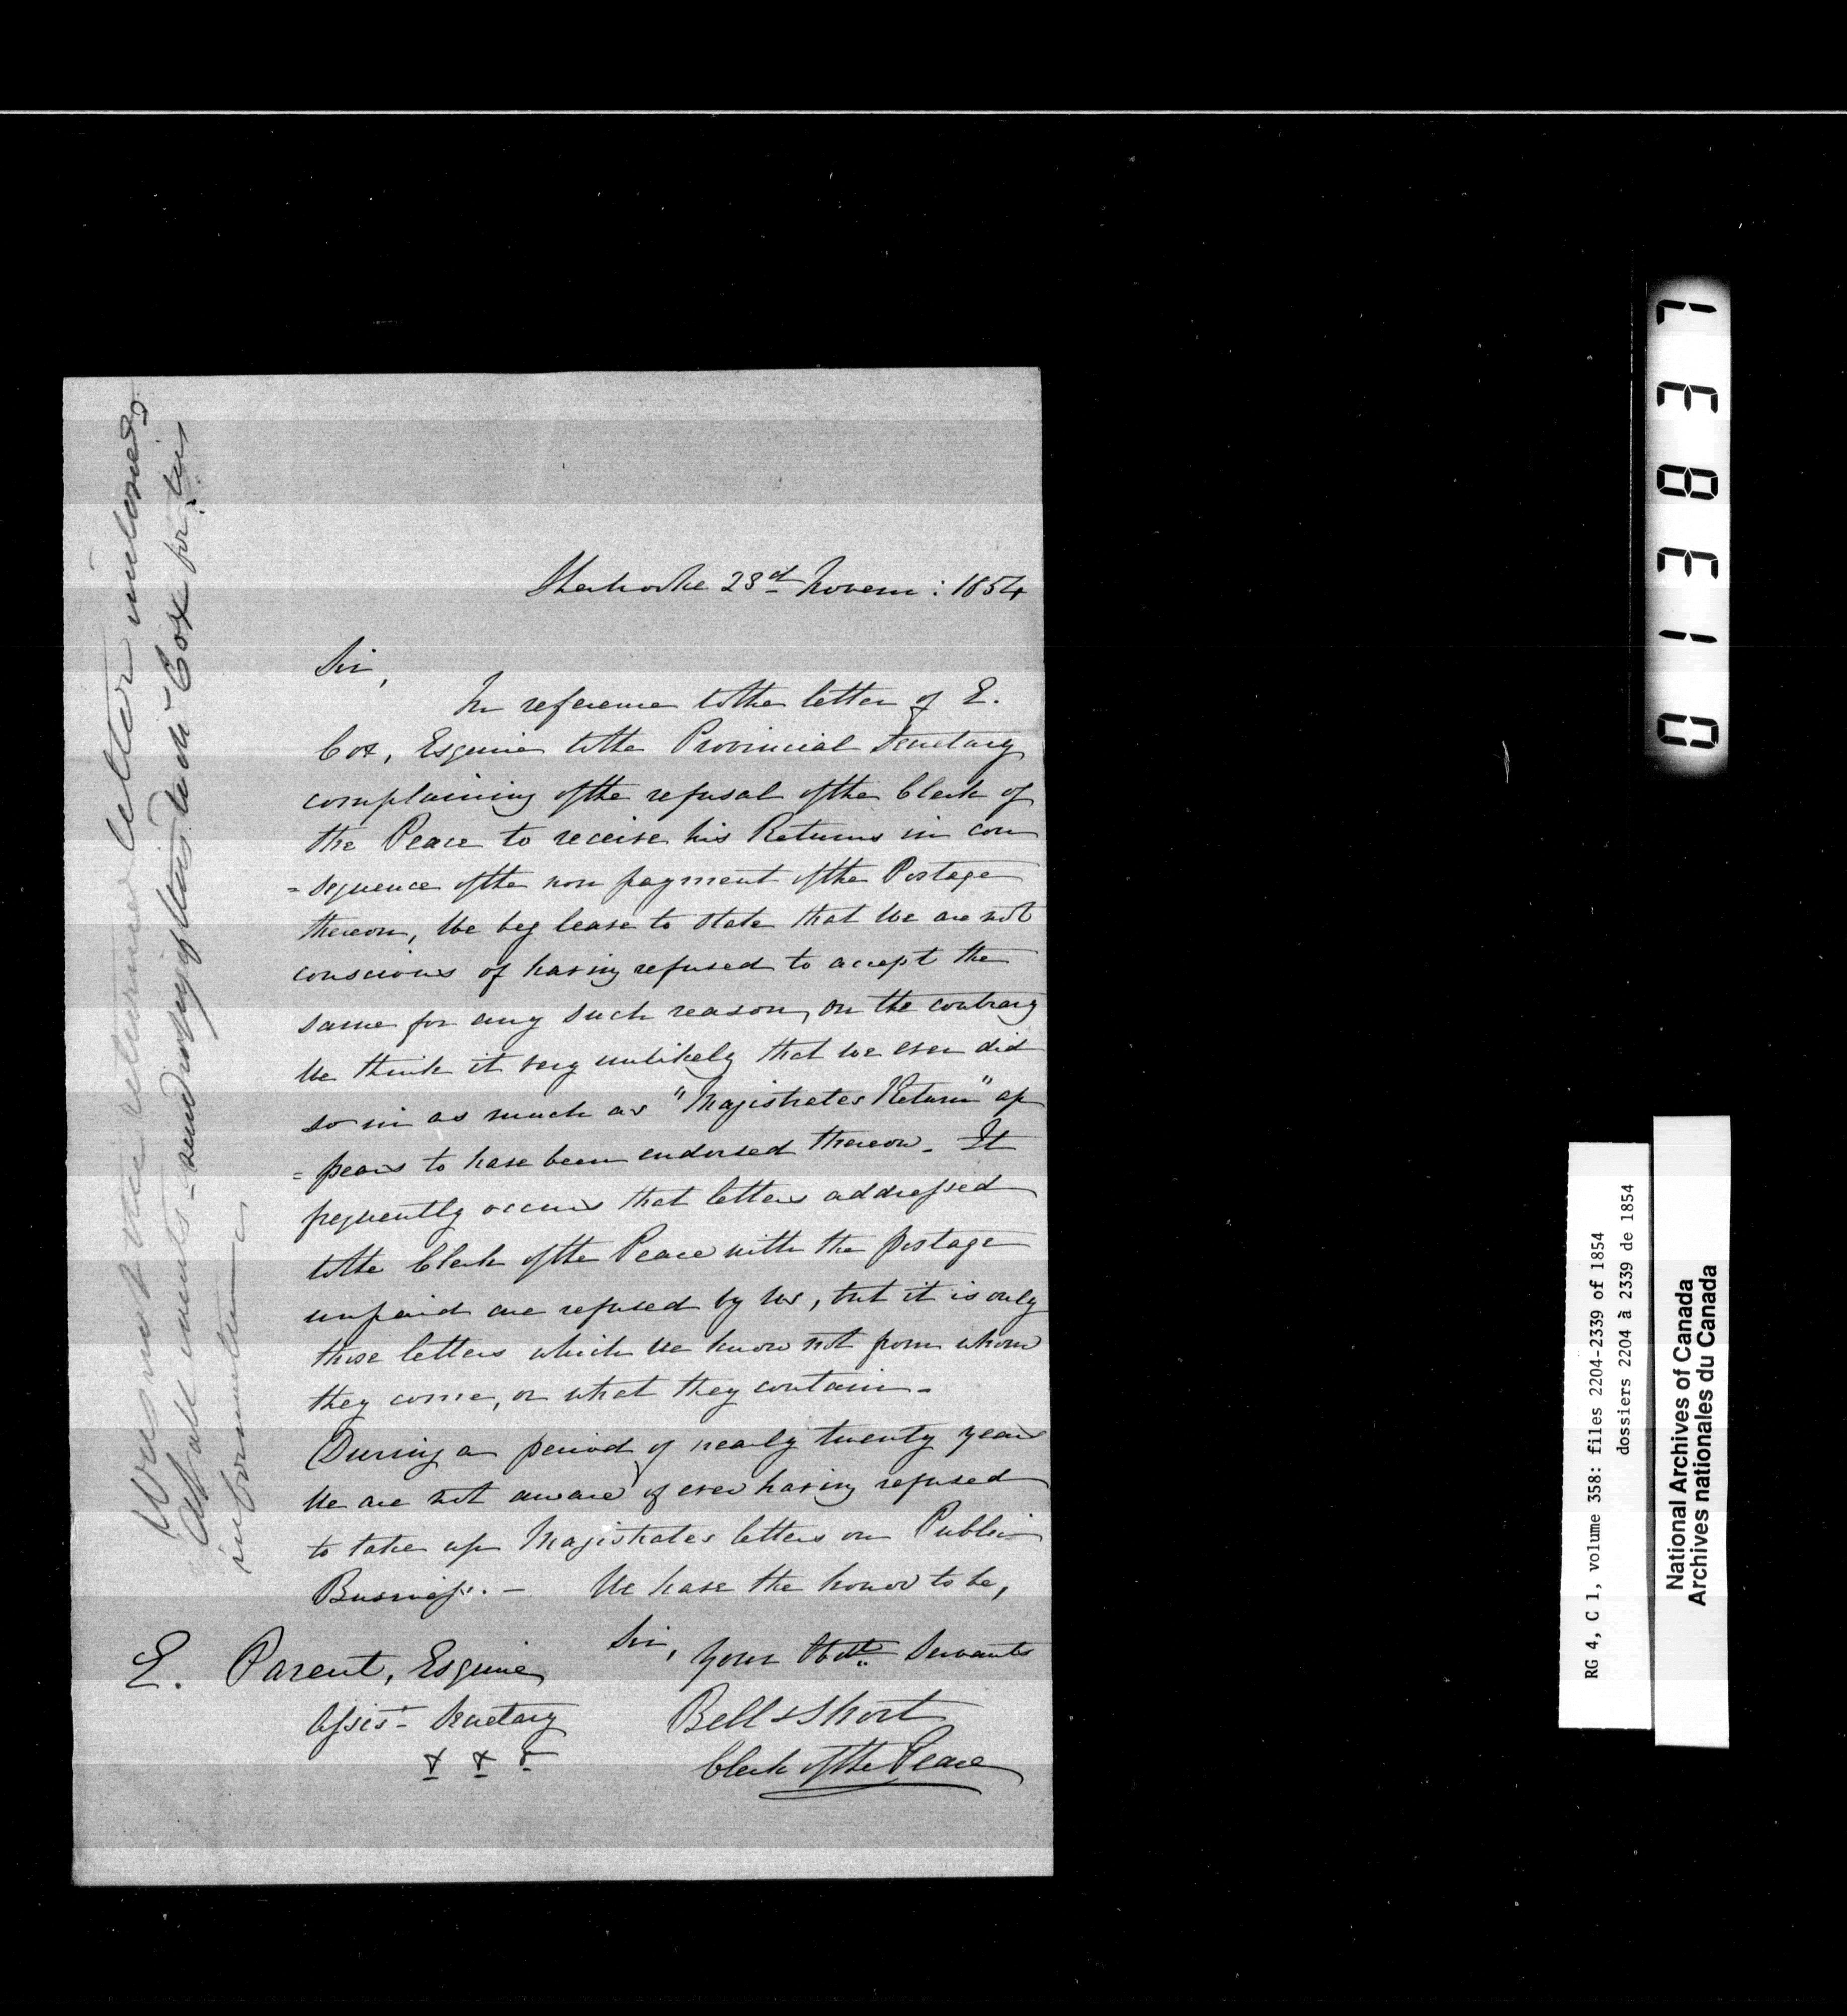 Sherbrooke 23d Novem: 1854
Sir,
In reference to the letter of E.
Cox, Esquire to the Provincial Secretary
complaining of the refusal of the Clerk of
the Peace to receive his Returns in con
=sequence of the non payment of the Postage
thereon, We beg leave to state that We are not
conscious of having refused to accept the
same for any such reason, on the contrary
We think it very unlikely that we ever did
so in as much as "Magistrates Return" ap
=pears to have been endorsed thereon. It
frequently occurs that letters addressed
to the Clerk of the Peace with the postage
unpaid are refused by Us, but it is only
those letters which We know not from whom
they come, or what they contain.
During a period of nearly twenty years
We are not aware of ever having refused
to take up Magistrates letters on Public
Business. — We have the honor to be,
Sir, Your Obdt. Servants
Bell & Short
Clerk of the Peace
E. Parent, Esquire
Assist Secretary
& & &
Was not the returned letter enclosed?
At all events - send copy of this to Mr Cox for his
information
013837
RG 4, C 1, volume 358: files 2204-2339 of 1854
dossiers 2204 à 2339 de 1854
National Archives of Canada
Archives nationales du Canada